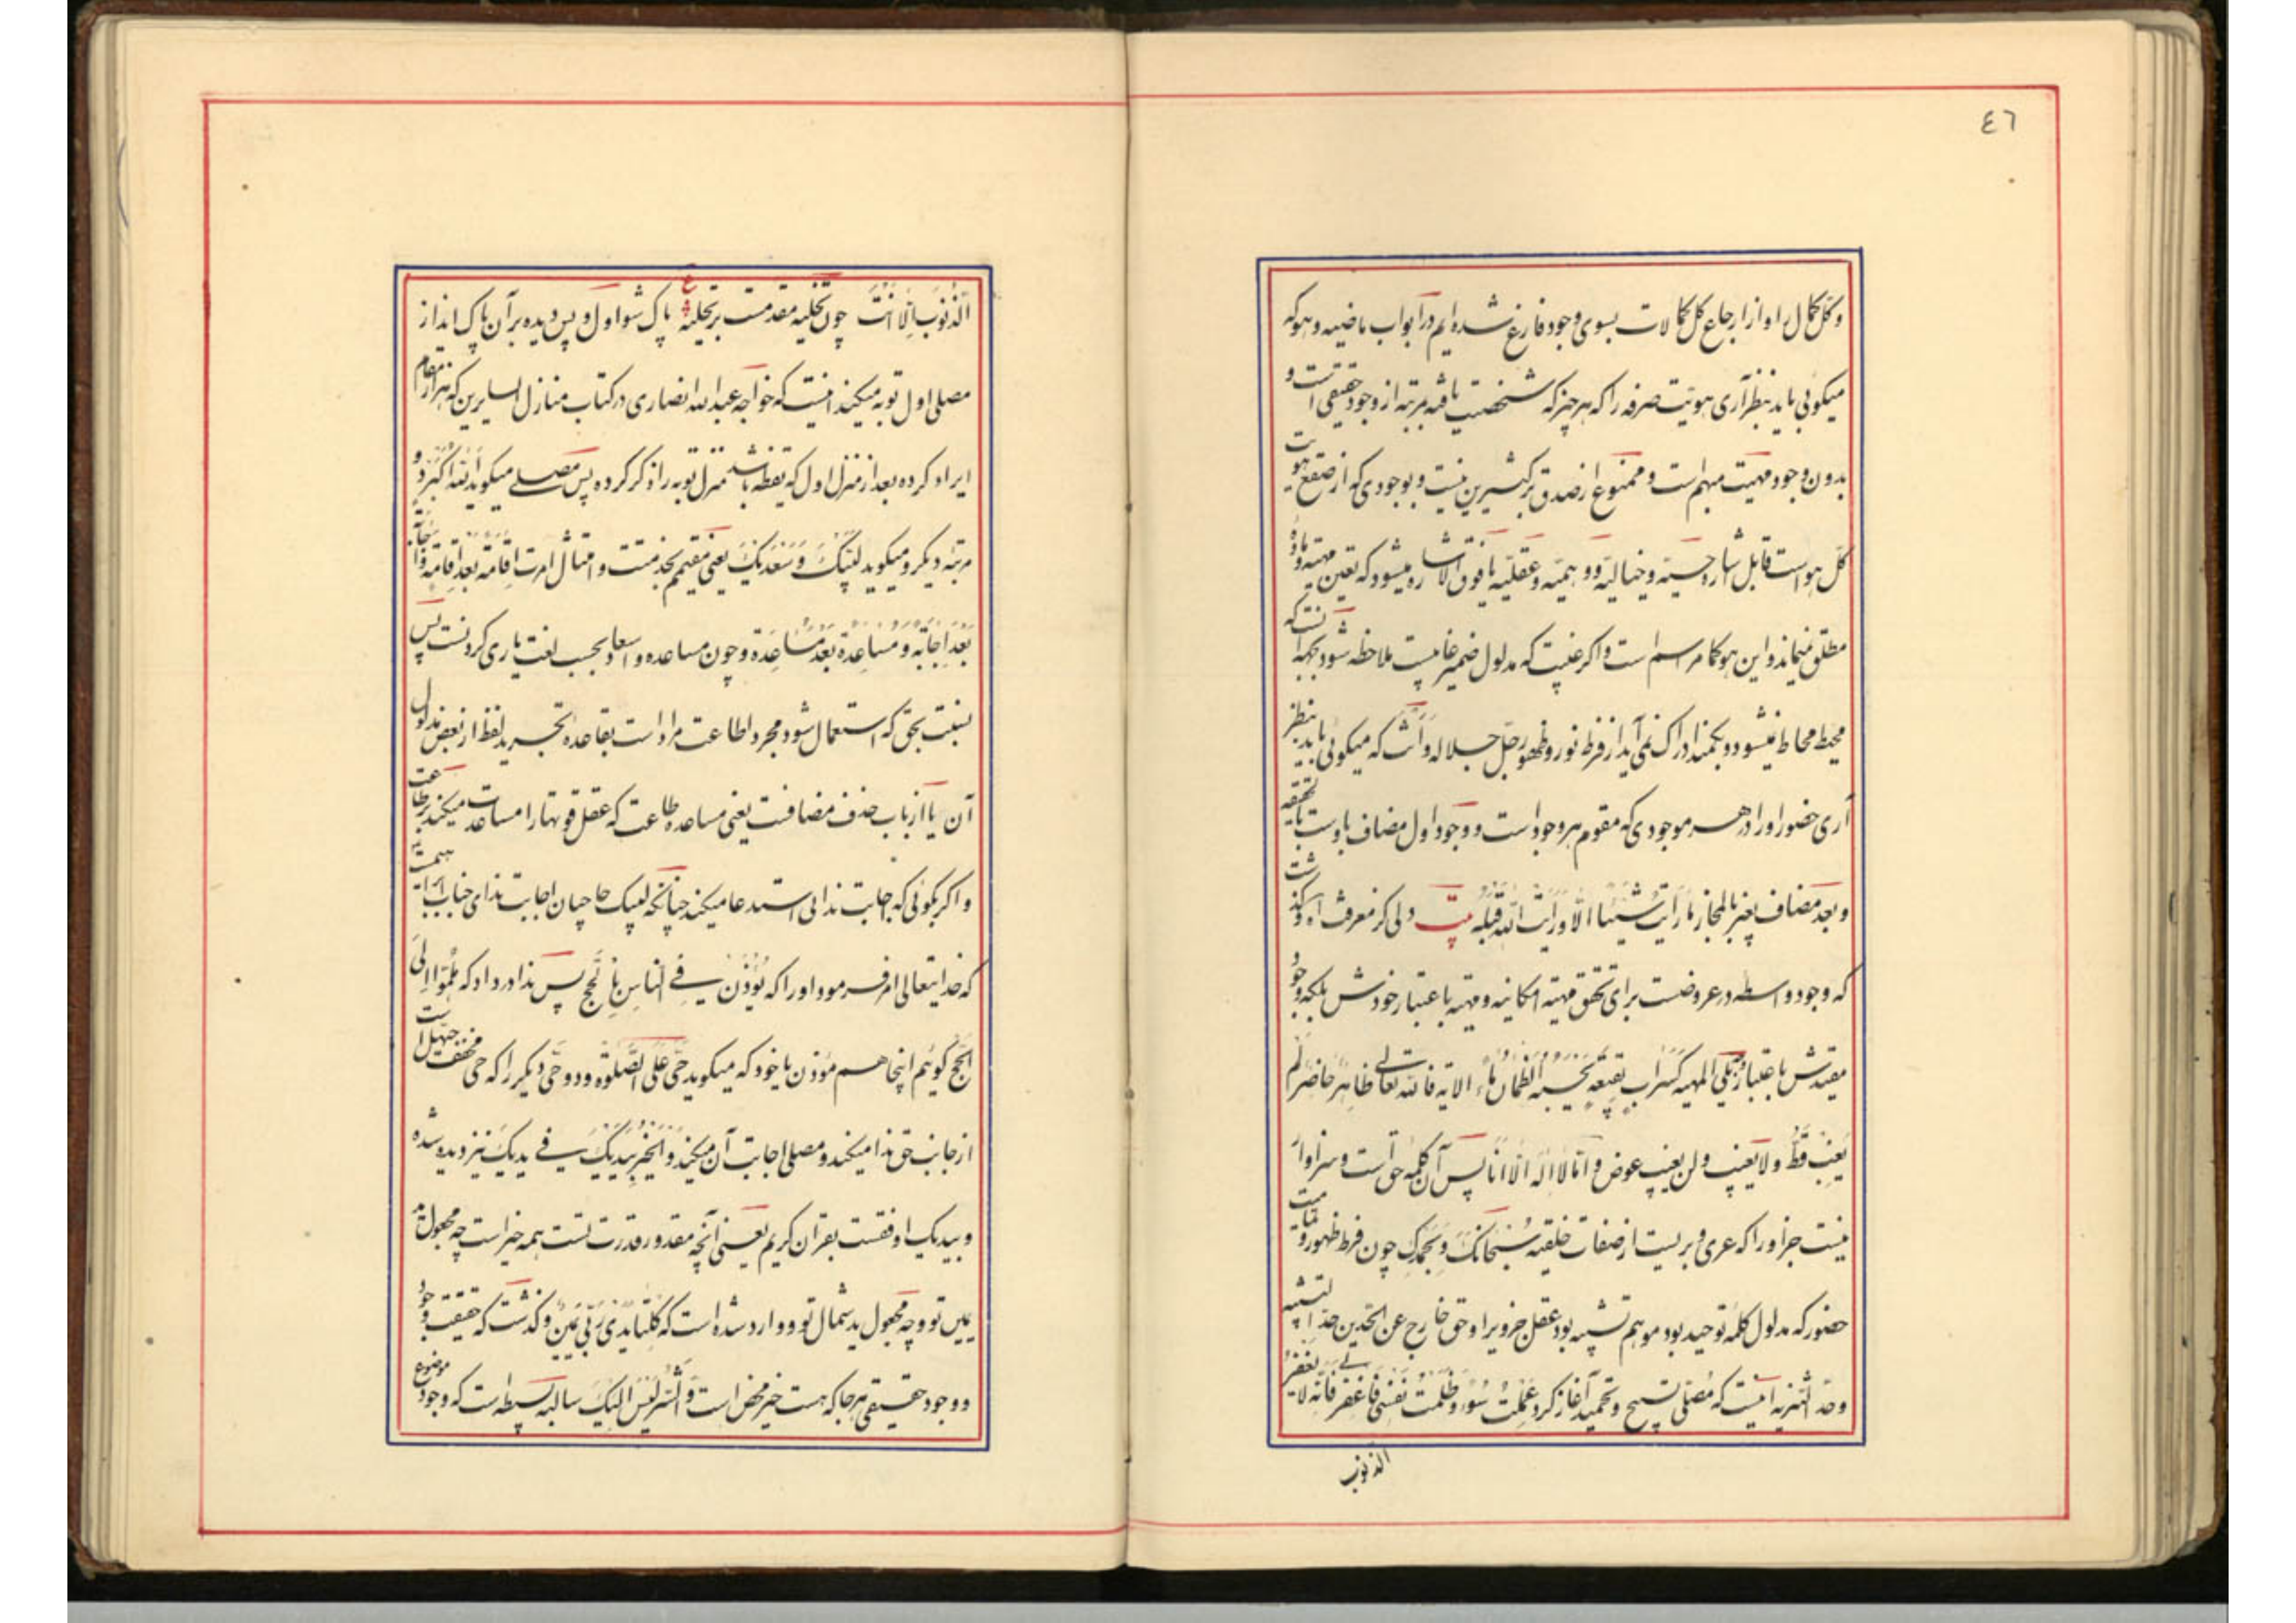 ٤٦
و کل کمال او از ارجاع کل کمالات بسوی وجود فارغ شده ایم در ابواب ماضیه و هو که
میکوئی باید بنظر آری هویت صرفه را که هر چیز که شخصیت یافته بمرتبه از وجود حقیقی است و
بدون وجود مهیت مبهم است و ممنوع از صدق بر کثیرین نیست و بوجودی که از صقع هویت
کل هو است قابل اشاره حسیه و خیالیه و وهمیه و عقلیه یا فوق الاشاره میشود که تعین مهیة و ماده
مطلق نمیماند و این هو کما مر اسم است و اکر غیبت که مدلول ضمیر غایبست ملاحظه شود بجهه آنست که
محیط محاط نمیشود و بکمند ادراک نمی آید از فرط نور و ظهور جل جلاله و انت که میکوئی باید بنظر
آری حضور او را در هر موجودی که مقوم هر وجود است و وجود اول مضاف باوست بالحقیقه
و بعد مضاف بغیر بالمجاز ما رایت شیئا الا و رایت الله قبله بیت دلی کز معرفت اه و کذشت
که وجود واسطه در عروضست برای تحقق مهیة امکانیه و مهیة باعتبار خودش بلکه وجود
مقیدش باعتبار وجه یلی المهیه کسراب بقیعة یحسبه الظمان ماء الایة فالله تعالی ظاهر حاضر لم
یغب قط و لا یغیب و لن یغیب عوض و انا لا اله الا انا پس آن کلمه حق است و سزاوار
نیست جز او را که عری و بریست از صفات خلقیه سبحانک و بحمدک چون فرط ظهور و تمامیت
حضور که مدلول کلمه توحید بود موهم تشبیه بود عقل خرویرا و حق خارج عن الحدین حد التشبیه
و حد التنزیه است که مصلی تسبیح و تحمید آغاز کرد عملت سوء و ظلمت نفسی فاغفر لی فانه لا یغفر
الذنوب
الذنوب الا انت چون تخلیه مقدمست بر تحلیه ع پاک شو اول و پس دیده بر آن پاک انداز
مصلی اول توبه میکند اینست که خواجه عبدالله انصاری در کتاب منازل السایرین که هزار مقام
ایراد کرده بعد از منزل اول که یقظه باشد منزل توبه را ذکر کرده پس مصلی میکوید الله اکبر دو
مرتبه دیکر و میکوید لبیک و سعدیک یعنی مقیمم بخدمتت و امتثال امرت اقامة بعد اقامة و اجابة
بعد اجابة و مساعدة بعد مساعدة و چون مساعده و اسعاد بحسب لغت یاری کردنست پس
بسنبت بحق که استعمال شود مجرد اطاعت مراد است بقاعده تجرید لفظ از بعض مدلول
آن یا از باب حذف مضافست یعنی مساعده طاعت که عقل قوتها را مساعدت میکند بر طاعت
و اکر بکوئی که اجابت ندائی استدعا میکند چنانکه لبیک حاجیان اجابت ندای جناب ابراهیمست
که خدایتعالی امر فرمود او را که یؤذن فی الناس بالحج پس ندا در داد که هلموا الی
الحج کوئیم اینجا هم مؤذن یا خود که میکوید حی علی الصلوة و دو حی دیکر را که حی مخفف حیهل است
از جانب حق ندا میکند و مصلی اجابت آن میکند و الخیر بیدیک فی یدیک نیز دیده شده
و بیدیک اوفقست بقران کریم یعنی آنچه مقدور قدرت تست همه خیر است چه مجعول ید
یمین تو و چه مجعول ید شمال تو و وارد شده است که کلتا یدی ربی یمین و کذشت که حقیقت وجود
و وجود حقیقی هر جا که هست خیر محض است و الشر لیس الیک سالبه بسیطه است که وجود موضوع